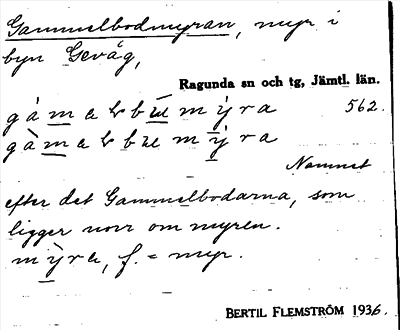 Gammelbodmyran, myr i
byn Gevåg,
Ragunda sn och tg, Jämtl. län.
562.
Namnet
efter det Gammelbodarna, som
ligger norr om myren.
f. = myr.
BERTIL FLEMSTRÖM 1936.